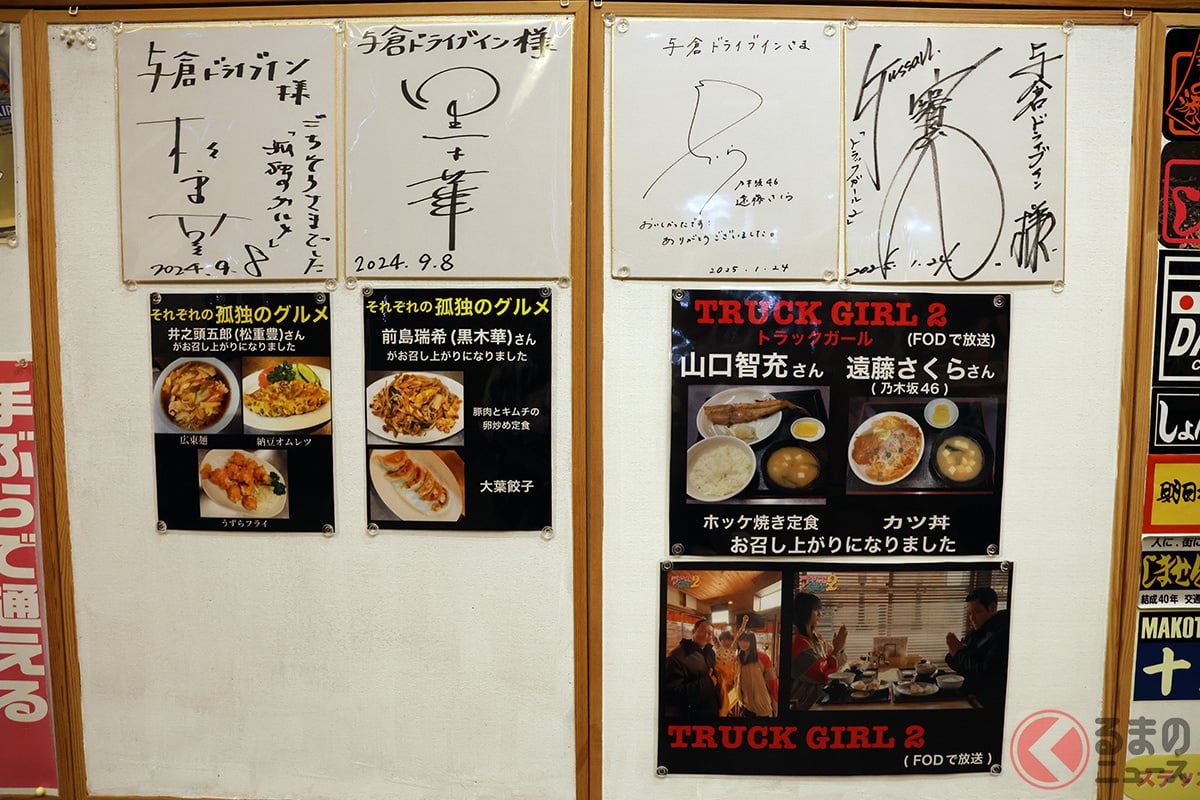 与倉ドライブイン
様
ごちそうさまでした
「孤独のグルメ」
松重豊
2024.9.8
与倉ドライブイン様
黒木華
2024.9.8
与倉ドライブインさま
さくら
乃木坂46
遠藤さくら
おいしかったです!
ありがとうございました。
2025.1.24
与倉ドライブイン様
「トラックガール2」
2025.1.24
それぞれの孤独のグルメ
井之頭五郎(松重豊)さん
がお召し上がりになりました
広東麺
納豆オムレツ
うずらフライ
それぞれの孤独のグルメ
前島瑞希(黒木華)さん
がお召し上がりになりました
豚肉とキムチの
卵炒め定食
大葉餃子
TRUCK GIRL 2
トラックガール
(FODで放送)
山口智充さん
遠藤さくらさん
(乃木坂46)
ホッケ焼き定食
カツ丼
お召し上がりになりました
TRUCK GIRL 2
(FODで放送)
手ぶらで通える
しょん
明日
人に、街に
しません
結成40年 交通
MAKOT
十
くるまの
ニュース
ステッ